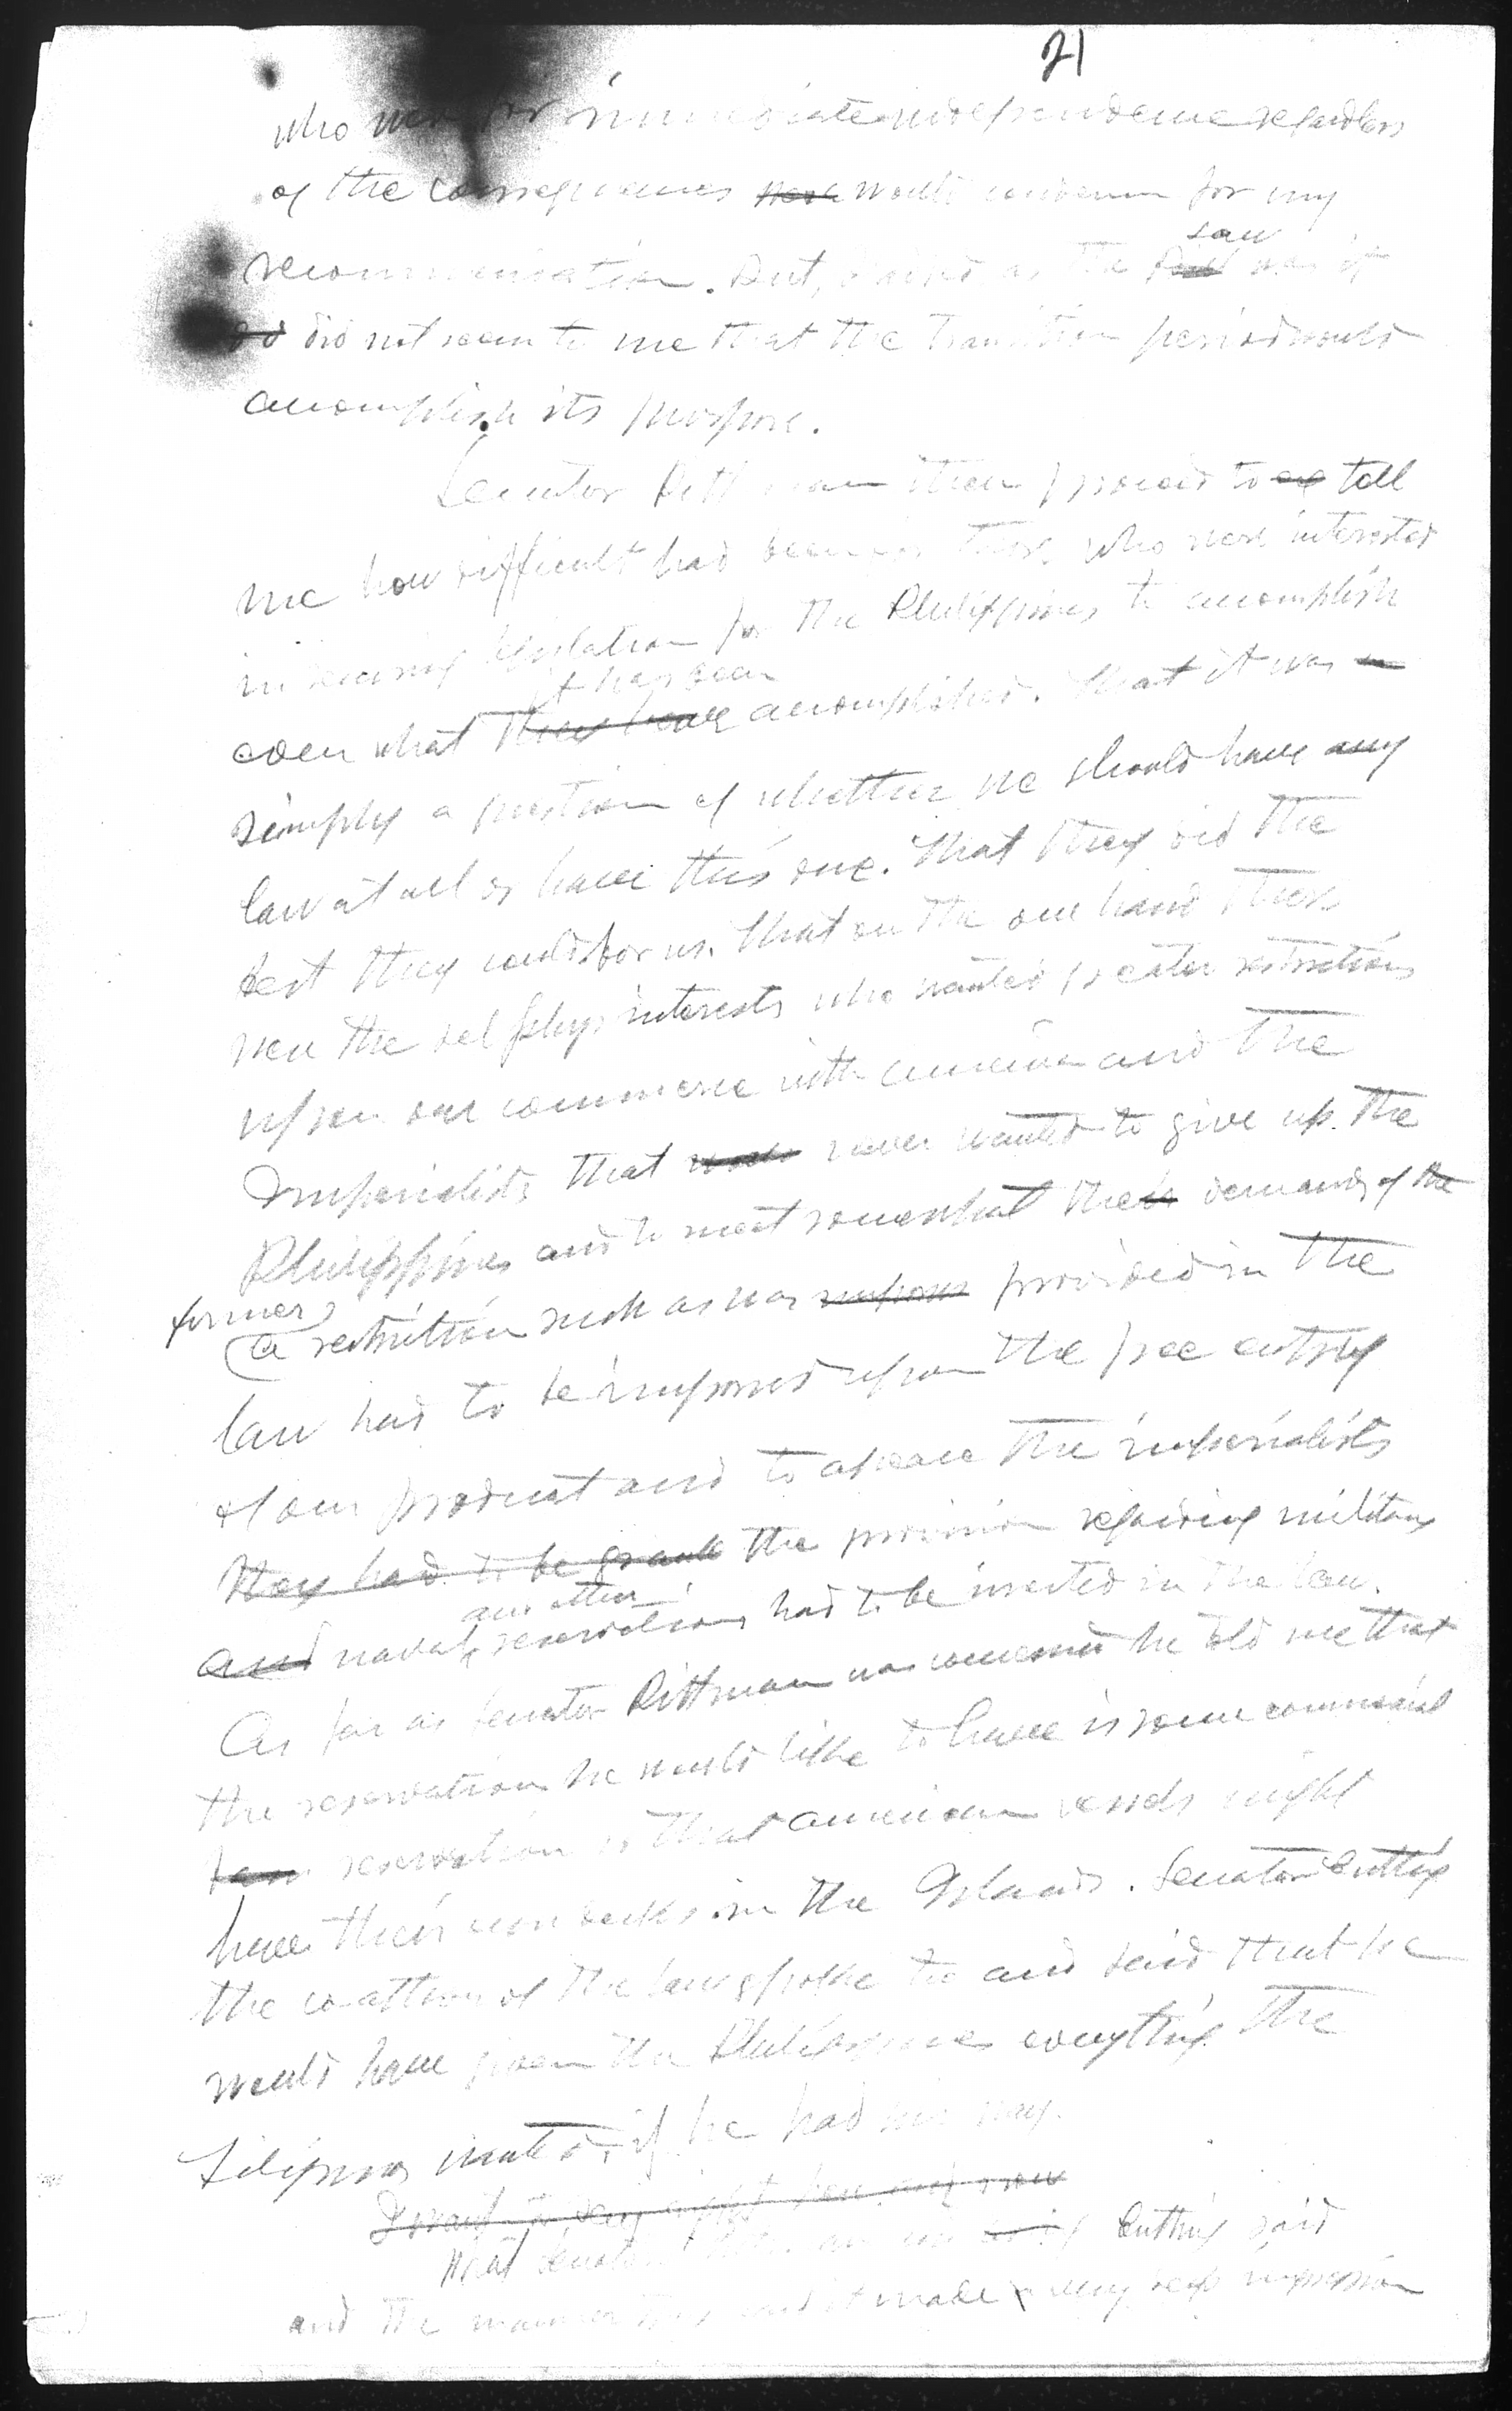 21
who were for immediate independence regardless
of the consequences would condemn for my
recommendation. But, as the law was it
did not seem to me that the transition period would
accomplish its purpose.
Senator Pittman then proceed to tell
me how difficult had been for those who were interested
in securing legislation for the Philippines to accomplish
even what it has been accomplished. That it was
simply a question of whether we should have any
law at all or have this one. That they did the
best they could for us. That on the one hand there
were the selfish interests who wanted greater restrictions
upon our commerce with America and the
Imperialists that never wanted to give up the
Philippines and to meet somewhat the demands of the
former a restriction such as was provided in the
law had to be imposed upon the free entry
of our product and to apeace the imperialists
they had to be the provision regarding military
and naval and other reservations had to be inserted in the law.
As far as Senator Pittman was concerned he told me that
the reservation he would like to have is some commercial
reservation so that American vessels might
have their own docks in the Islands. Senator Cutting
the co-author of the law spoke too and said that he
would have given the Philippines everything the
Filipinos wanted, if he had his way.
I want to say right here and now
What Senator and Cutting said
and the manner they said it made a very deep impression